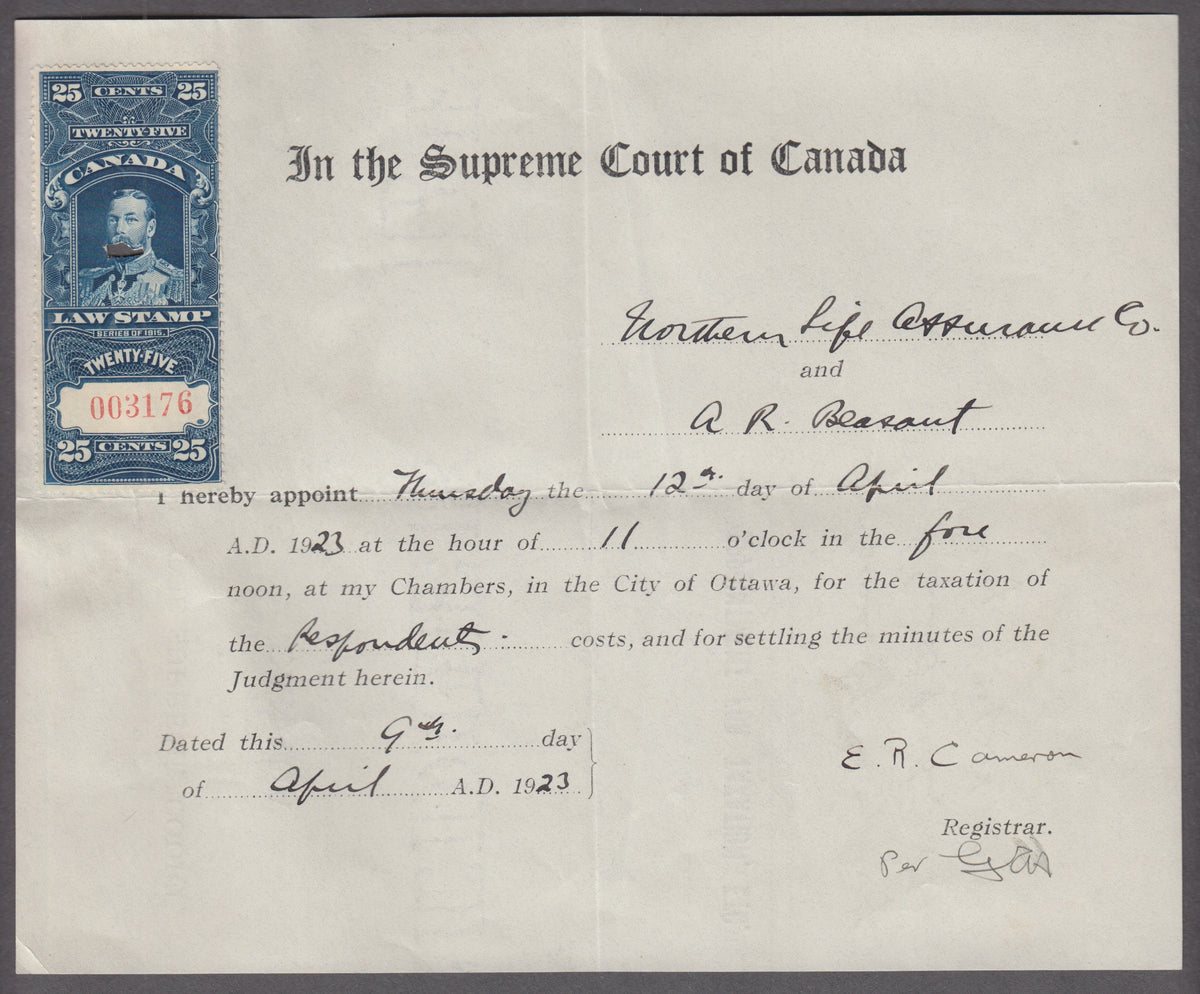 25 CENTS 25
TWENTY-FIVE
CANADA
LAW STAMP
SERIES OF 1915.
TWENTY-FIVE
003176
25 CENTS 25
In the Supreme Court of Canada
Northern Life Assurance Co.
and
A R. Beasant
I hereby appoint Thursday the 12th. day of April
A.D. 1923 at the hour of 11 o'clock in the fore
noon, at my Chambers, in the City of Ottawa, for the taxation of
the Respondents costs, and for settling the minutes of the
Judgment herein.
Dated this 9th. day
of April A.D. 1923
E. R. Cameron
Registrar.
Per